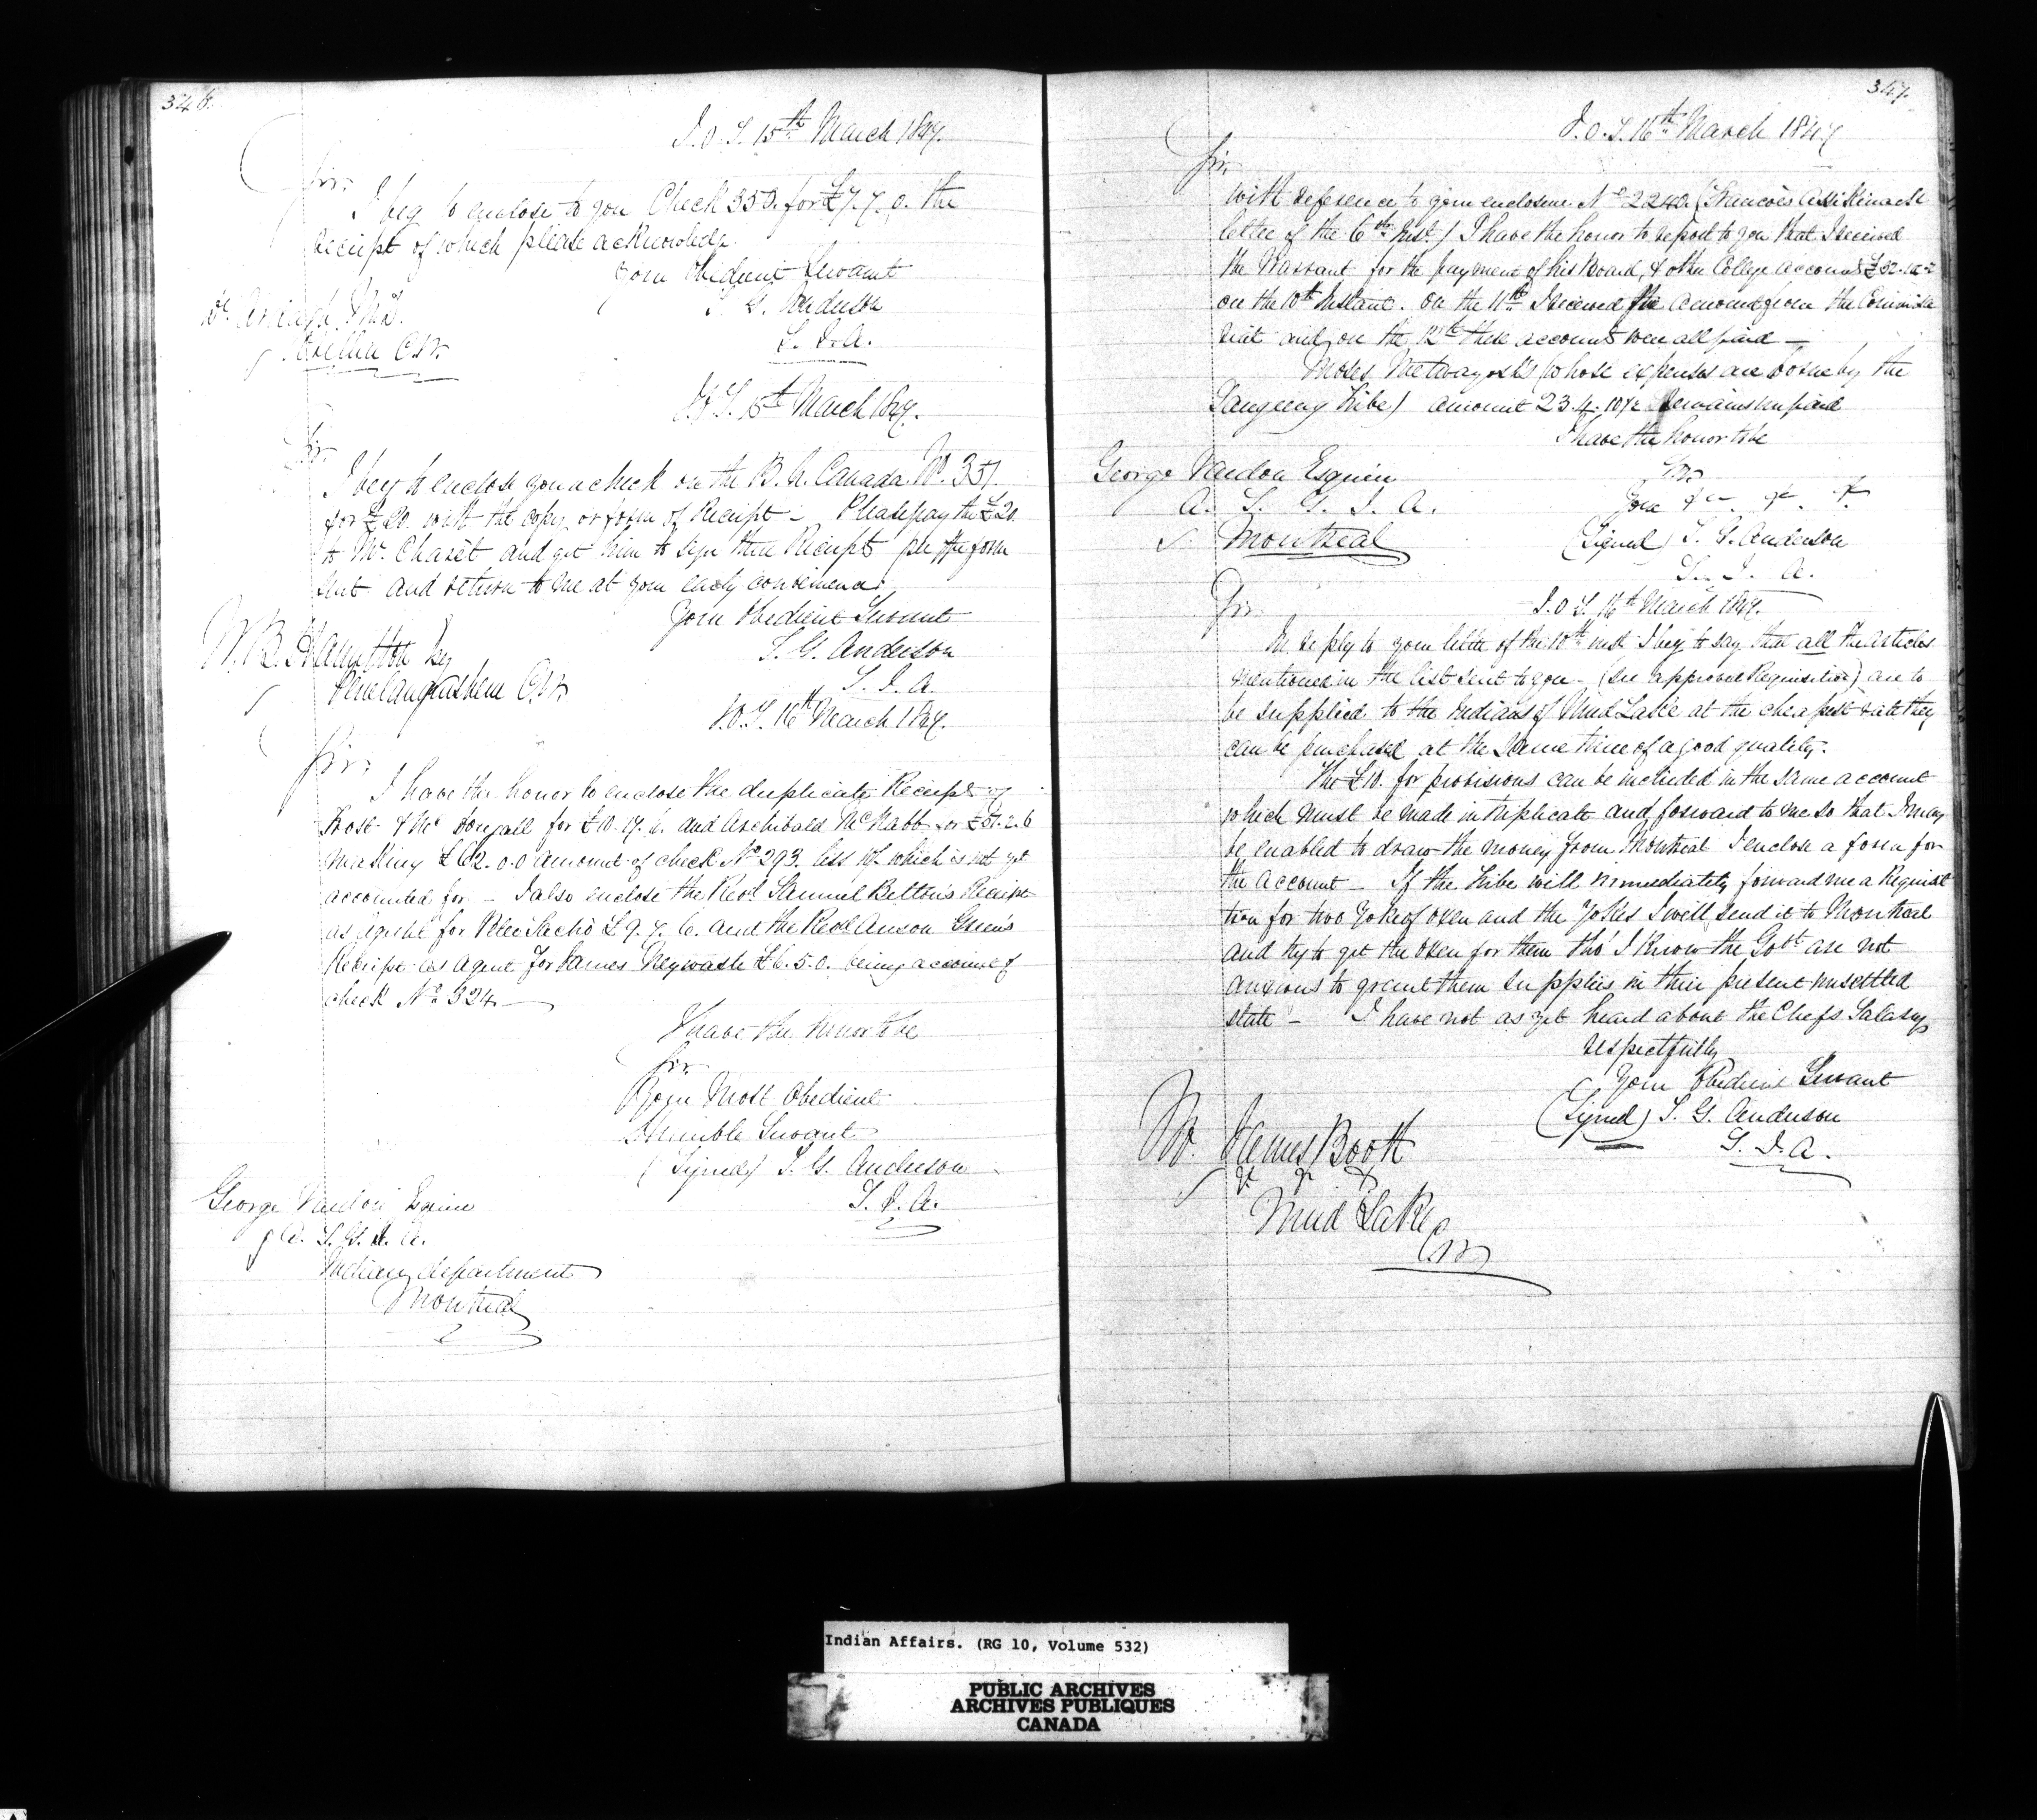 346.
I.O.T. 15th March 1847.
Sir,
I beg to enclose to you Check 350. for £7.7.0. the
receipt of which please acknowledge.
Your Obedient Servant
T. G. Anderson
S. I. A.
Orillia C.W.
I.O.T. 15th March 1847.
Sir,
I beg to enclose you a check on the B. U. Canada No. 351
for £20. with the copy or form of Receipt – Please pay the £20.
to Mr. Chazèt and get him to sign three Receipts per the form
sent and return to me at your early convenience.
Your Obedient Servant
T. G. Anderson
S. I. A.
W. B. Hamilton Esq
Penetanguishene C.W.
I.O.T. 16th March 1847.
Sir,
I have the honor to enclose the duplicate Receipt of
Frost & McDougall for £10.17.6. and Archibald McNabb for £51.2.6
making £62.0.0 amount of check No 293. less which is not yet
accounted for. – I also enclose the Revd. Samuel Belton's Receipt
as Agent for Peter Jacobs £9.7.6. and the Revd Anson Green's
Receipt as Agent for James Keywash £6.5.0. being account of
check No. 324 –
I have the honor to be
Sir
Your Most Obedient
Humble Servant
(Signed) T. G. Anderson
S. I. A.
George Vardon Esquire
A. S. G. I. A.
Indian department
Montreal
347.
I.O.T. 16th March 1847
Sir,
With reference to your enclosure No 2240. (Francois Assikinack
letter of the 6th Inst.) I have the honor to report to you that I received
the Warrant for the payment of his Board, & other College accounts
on the 10th Instant. On the 11th I received the amount from the Commissa
riat and on the 12th these accounts were all paid –
Moses Metwayosh's (whose expenses are borne by the
Saugeeng Tribe) amount 23.4.10½ Remains unpaid
I have the honor to be
Sir
Your &c &c &c
(Signed) T. G. Anderson
S. I. A.
George Vardon Esquire
A. S. G. I. A.
Montreal
I.O.T. 16th March 1847.
Sir
In reply to your letter of the 10th inst I beg to say that all the articles
mentioned in the list sent to you – (see approved Requisition) are to
be supplied to the Indians of Mud Lake at the cheapest rate they
can be purchased at the same time of a good quality.
The £10. for provisions can be included in the same account
which must be made in triplicate and forward to me so that I may
be enabled to draw the money from Montreal I enclose a form for
the account – If the tribe will immediately forward me a Requisi
tion for two Yoke of oxen and the Yokes I will send it to Montreal
and try to get the oxen for them tho' I know the Govt are not
anxious to grant them supplies in their present unsettled
state – I have not as yet heard about the Chefs Salary
respectfully
Your Obedient Servant
(Signed) T. G. Anderson
S. I. A.
Mr. James Booth
&c &c &c
Mud Lake
C.W.
Indian Affairs. (RG 10, Volume 532)
PUBLIC ARCHIVES
ARCHIVES PUBLIQUES
CANADA